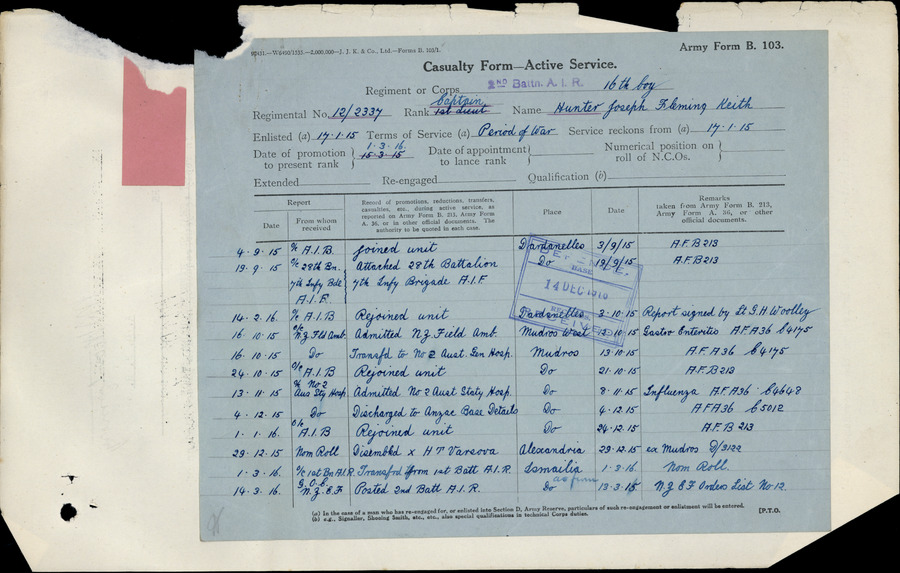 Army Form B. 103.
Casualty Form—Active Service.
Regiment or Corps 2ND Battn. A.I.R. 16th Coy
Captain
Regimental No. 12/2337 Rank 1st Lieut Name Hunter Joseph Fleming Keith
Enlisted (a) 17.1.15 Terms of Service (a) Period of War Service reckons from (a) 17.1.15
1.3.16
Date of promotion to present rank 15.3.15 Date of appointment to lance rank Numerical position on roll of N.C.Os.
Extended Re-engaged Qualification (b)
Report
Date From whom received
Record of promotions, reductions, transfers, casualties, etc., during active service, as reported on Army Form B. 213, Army Form A. 36, or in other official documents. The authority to be quoted in each case.
Place Date
Remarks taken from Army Form B. 213, Army Form A. 36, or other official documents.
4.9.15 O/C A.I.B. Joined unit Dardanelles 3/9/15 A.F.B 213
19.9.15 O/C 28th Bn. Attached 28th Battalion Do 19/9/15 A.F.B 213
7th Infy Bde 7th Infy Brigade A.I.F
A.I.F.
14 DEC
14.2.16. O/C A.I.B Rejoined unit Dardanelles 2.10.15 Report signed by Lt G.H Woolley
16.10.15 O/C N.Z. Fld Amb. Admitted N.Z. Field Amb. Mudros West 13.10.15 Gastor Enteritis A.F.A36 C4175
16.10.15 Do Transfd to No 2 Aust. Gen Hosp. Mudros 13.10.15 A.F.A36 C4175
24.10.15 O/C A.I.B Rejoined unit Do 21.10.15 A.F.B 213
13.11.15 O/C No 2 Aus Sty Hosp. Admitted No 2 Aust Staty Hosp. Do 8.11.15 Influenza A.F.A36 C4648
4.12.15 Do Discharged to Anzac Base Details Do 4.12.15 A.F.A36 C5012
1.1.16. O/C A.I.B Rejoined unit Do 24.12.15 A.F.B 213
29.12.15 Nom Roll Disembkd x HT Varsova Alexandria 29.12.15 ex Mudros D/3122
1.3.16. O/C 1st Bn A.I.R. Transfrd from 1st Batt A.I.R. Ismailia 1.3.16 Nom Roll.
as from
14.3.16. G.O.C. N.Z.E.F Posted 2nd Batt A.I.R. Do 13.3.16 N.Z.E.F Orders List No 12
(a) In the case of a man who has re-engaged for, or enlisted into Section D, Army Reserve, particulars of such re-engagement or enlistment will be entered.
(b) e.g., Signaller, Shoeing Smith, etc., etc., also special qualifications in technical Corps duties. [P.T.O.